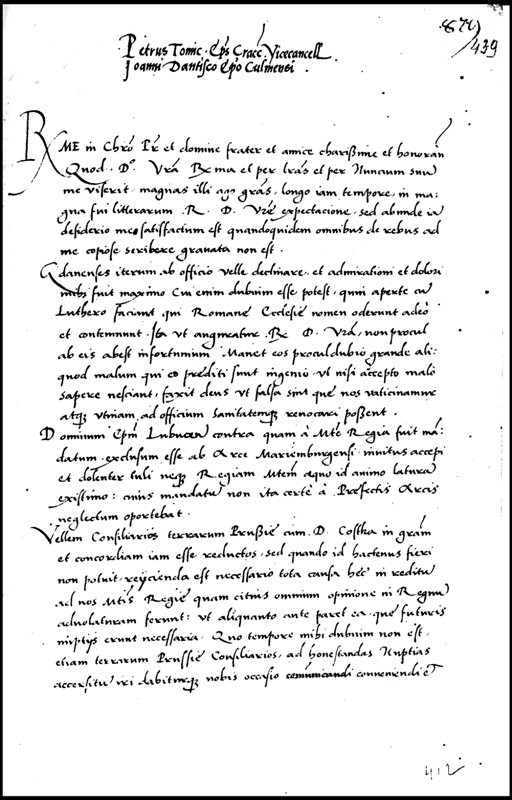 870
439
Petrus Tomic. Eps Cracc. Vicecancell.
Joanni Dantisco Epo Culmensi.
RME in Chro Pr et domine frater et amice charissime et honoran
Quod. D. Vra Rma et per lras et per Nuncium suu
me viserit, magnas illi ago gras, longo iam tempore, in ma:
gna fui litterarum R. D. Vre expectacione, sed abunde ia
desiderio meo satisfactum est quandoquidem omnibus de rebus ad
me copiose scribere gravata non est.
Gdanenses iterum ab officio velle declinare, et admirationi et dolori
mihi fuit maximo Cui enim dubium esse potest, quin aperte cu
Luthero faciant, qui Romane Ecclesie nomen oderunt adeo
et contemnunt. Ita ut angureatur. R. D. Vra, non procul
ab eis abest infortunium Manet eos procul dubio grande ali:
quod malum qui eo prediti sunt ingenio, ut nisi accepto malo
sapere nesciant, faxit deus ut falsa sint que nos vaticinamur
atq3 utinam ad officium sanitatemq3 renocari possent.
Dominum Epm Lubucen contra quam a Mte Regia fuit ma:
datum, exclusum esse ab Arce Mariemburgensi, invitus accepi
et dolenter tuli neq3 Regiam Mtem aquo id animo latura
existimo: cuius mandatu non ita certe a Prefectis Arcis
neglectum oportebat.
Vellem Consiliarios terrarum Prussie cum. D. Costka in gram
et concordiam iam esse reductos, sed quando id hactenus fieri
non potuit, reijcienda est necessario tota causa hec in reditu
ad nos Mtis Regie quam citius omnium opinione in Regnu
advolaturam ferunt: ut aliquanto ante paret ea, que futuris
nuptijs erunt necessaria. Quo tempore mihi dubium non est,
etiam terrarum Prussie Consiliarios, ad honestandas Nuptias
accersitu iri dabiturq3 nobis occasio communicandi conveniendi et
412